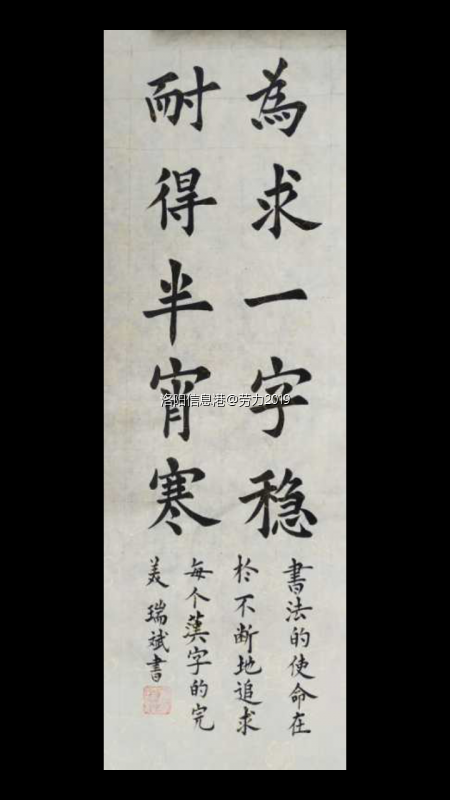 為求一字稳
耐得半宵寒
書法的使命在
扵不断地追求
每个漢字的完
美 瑞斌書
洛阳信息港@劳力2019